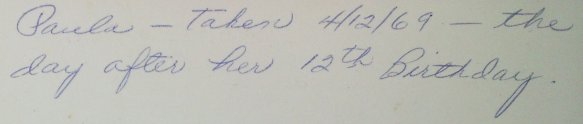 Paula - taken 4/12/69 - the
day after her 12th Birthday.